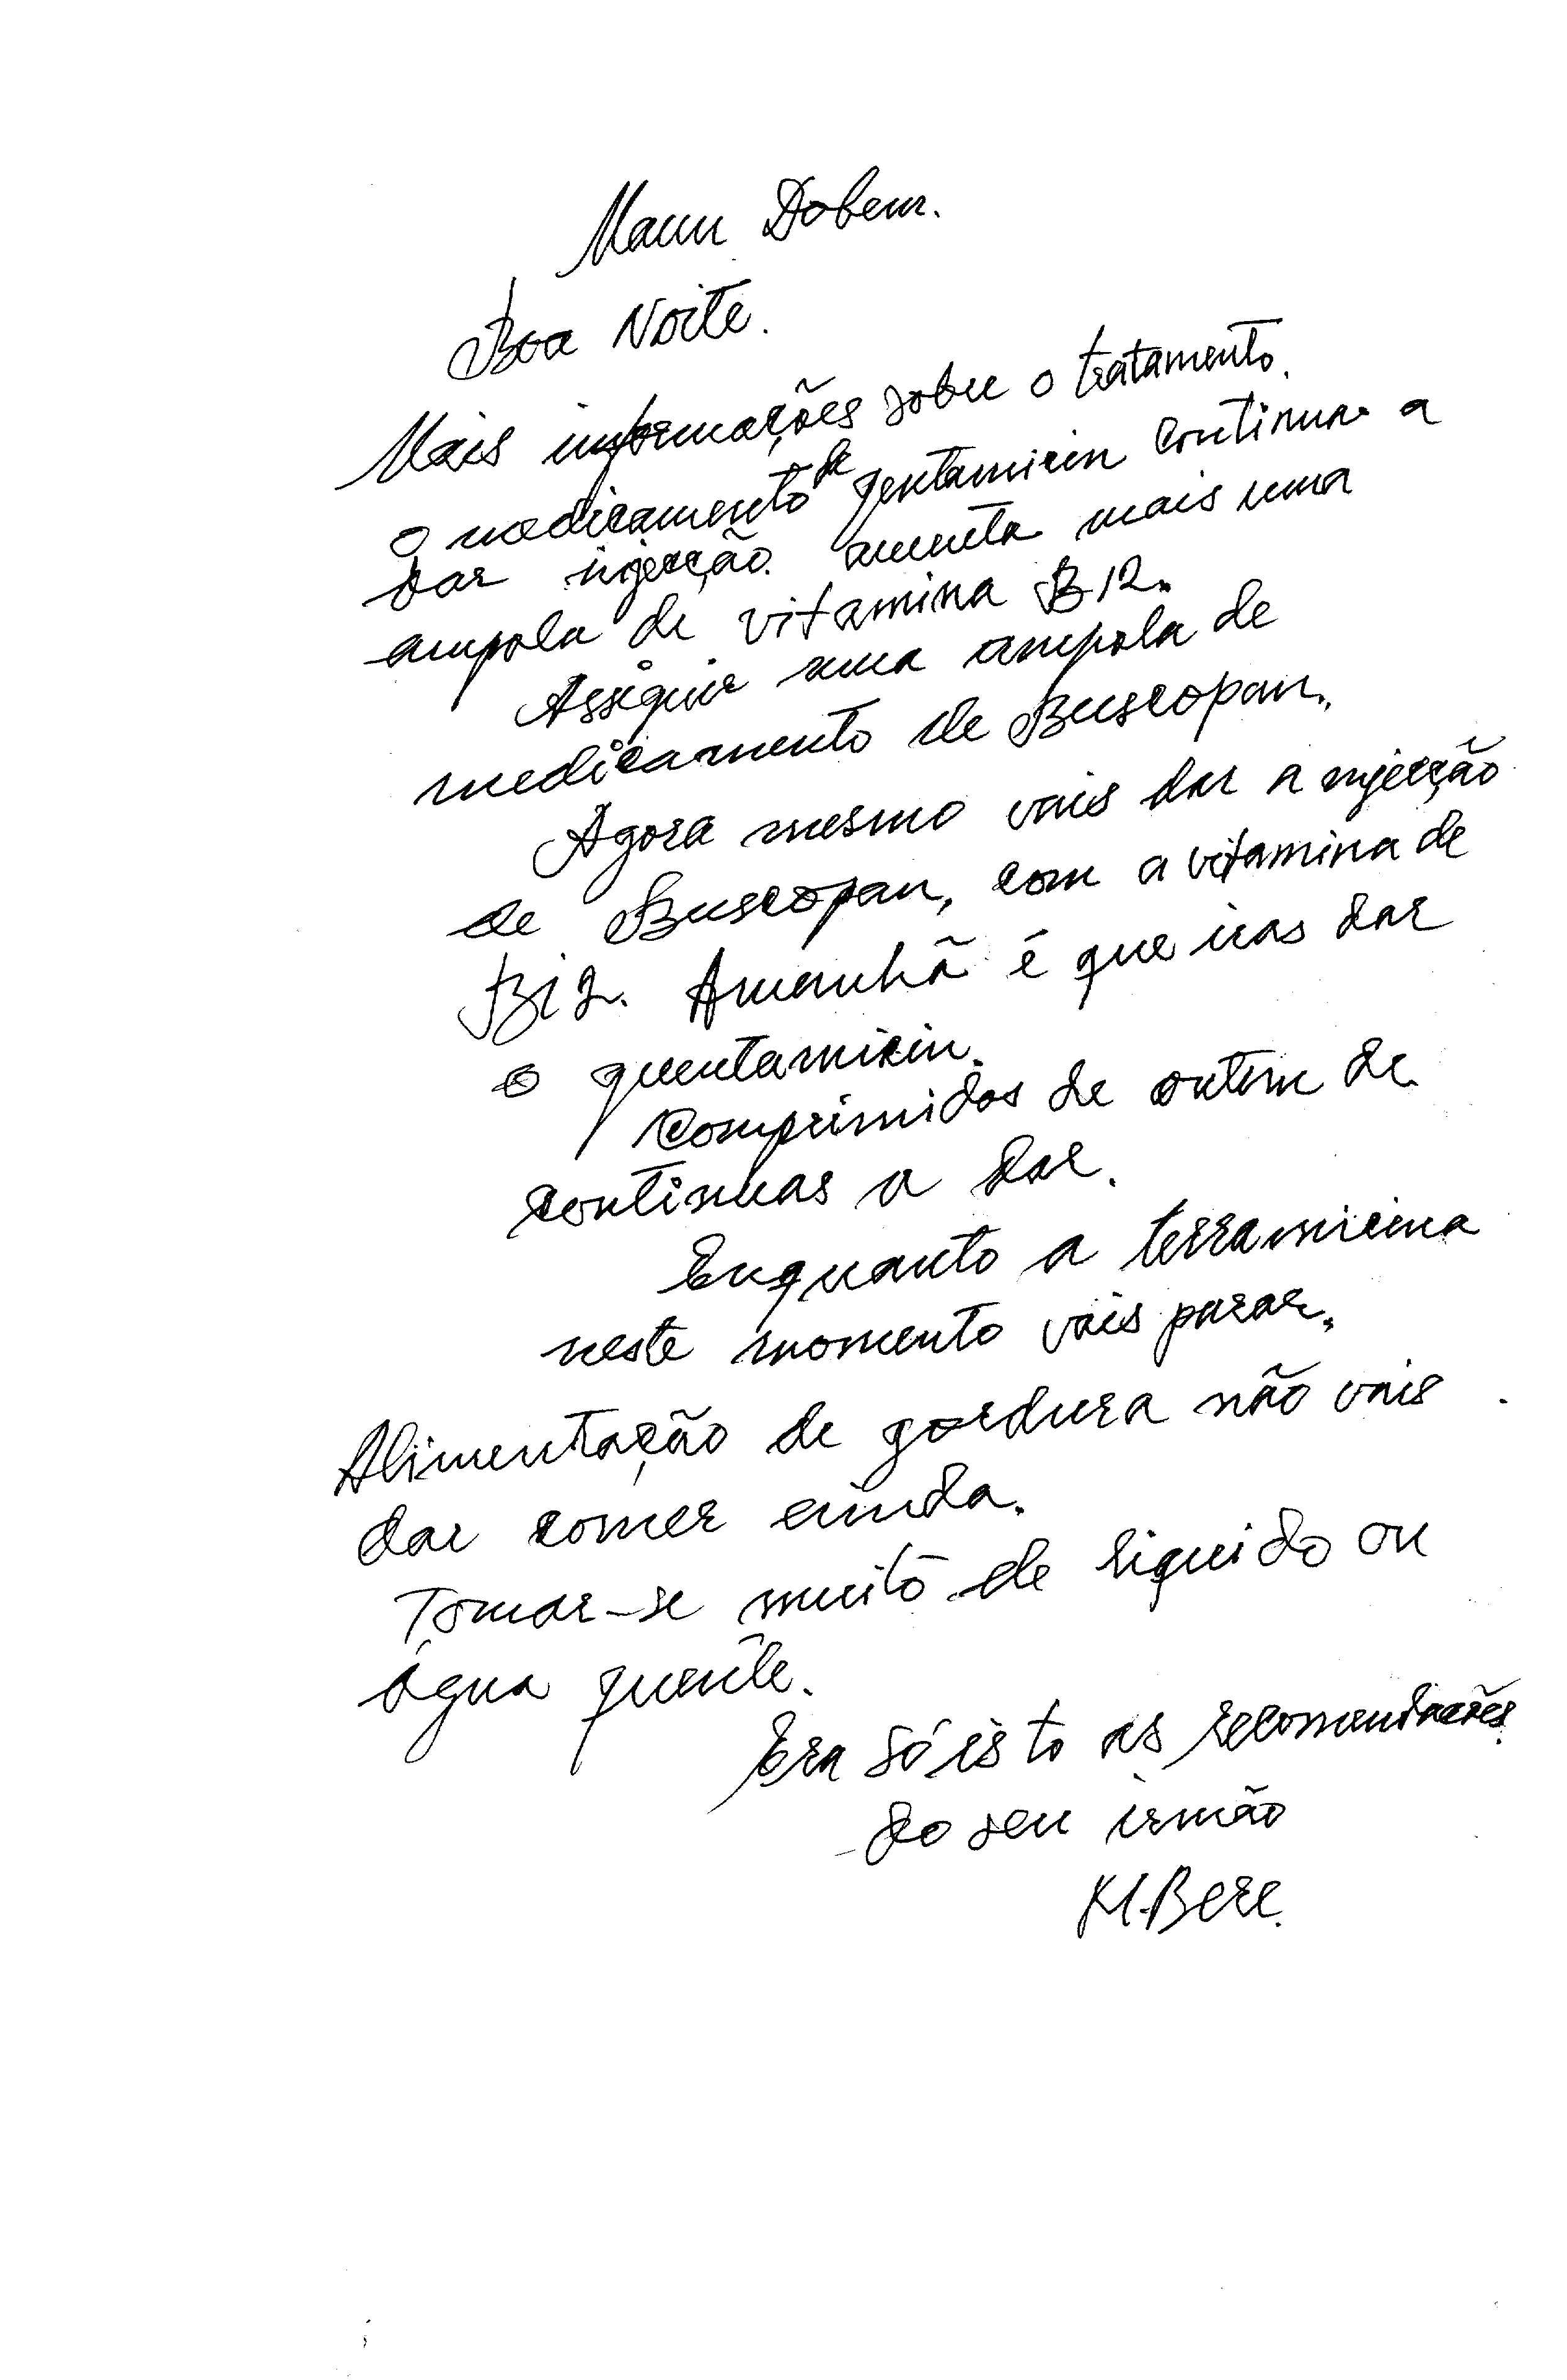 Maun Dobem.
Boa Noite.
Mais informações sobre o tratamento.
o medicamento de gentamicin continua a
dar injecção. aumenta mais uma
ampola de vitamina B12.
Assiguir uma ampola de
medicamento de Buscopan.
Agora mesmo vais dar a injecção
de Buscopan, com a vitamina de
B12. Amanhã é que iras dar
o guentamicin.
Comprimidos de ontem de
continuas a dar.
Enquanto a terramicina
neste momento vais parar.
Alimentação de gordura não vais
dar comer ainda.
Tomar-se muito de liquido ou
água quente.
Era só isto as recomendações
do seu irmão
M.Bere.